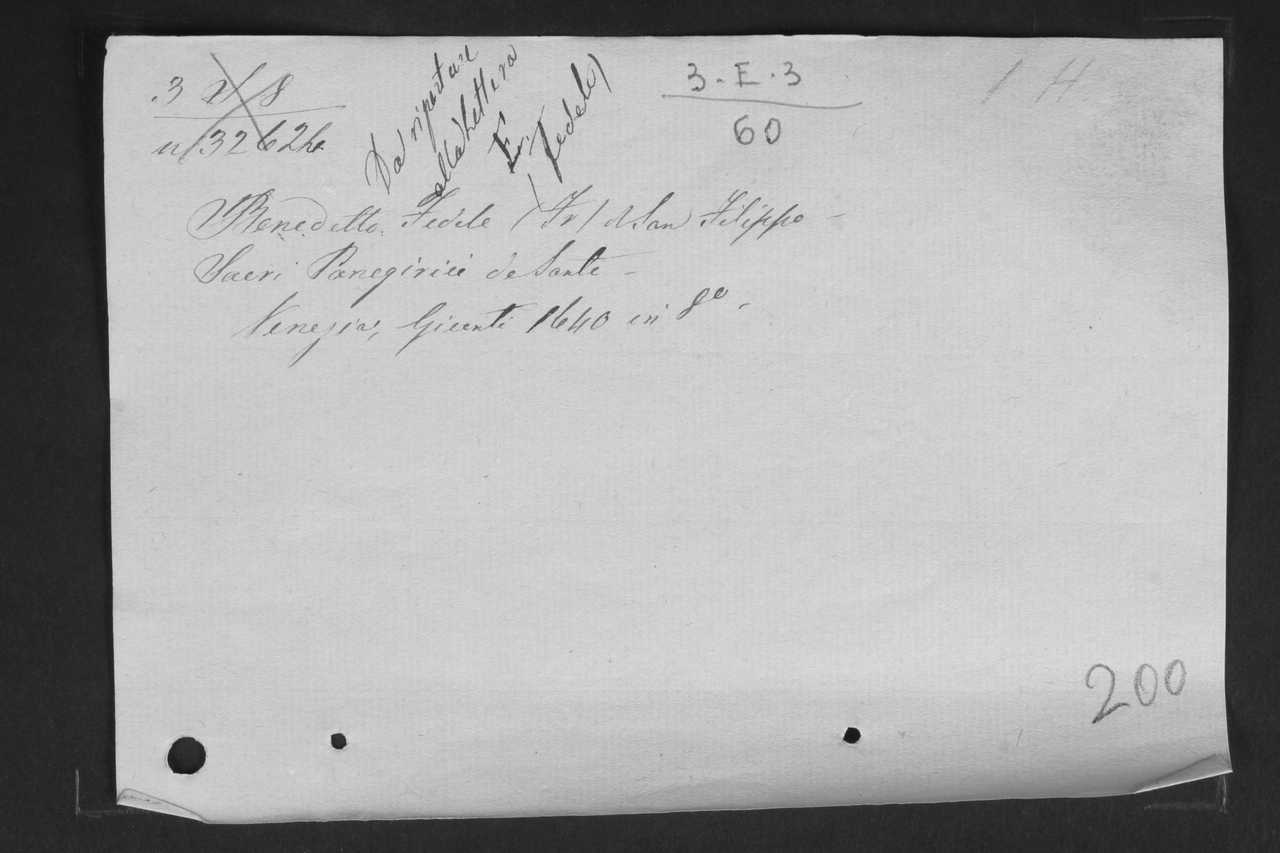 3 X 8
n/32626
Da riportare
alla lettera
F.
(Fedele)
3-E-3
60
1 H
Benedetto Fedele (Fr) d San Filippo -
Sacri Panegirici de Santi -
Venezia, Giunti 1640 in 8o.
200